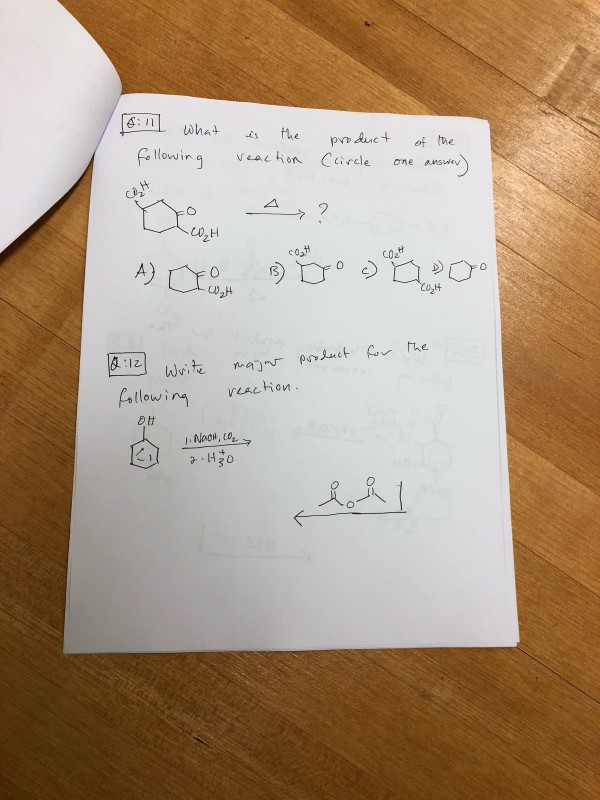 Q:11 What is the product of the
following reaction (circle one answer)
CO2H
O
CO2H
Δ
?
A) O CO2H B) CO2H O C) CO2H CO2H D) O
Q:12 Write major product for the
following reaction.
OH
1. NaOH, CO2
2. H3+O
O O
O